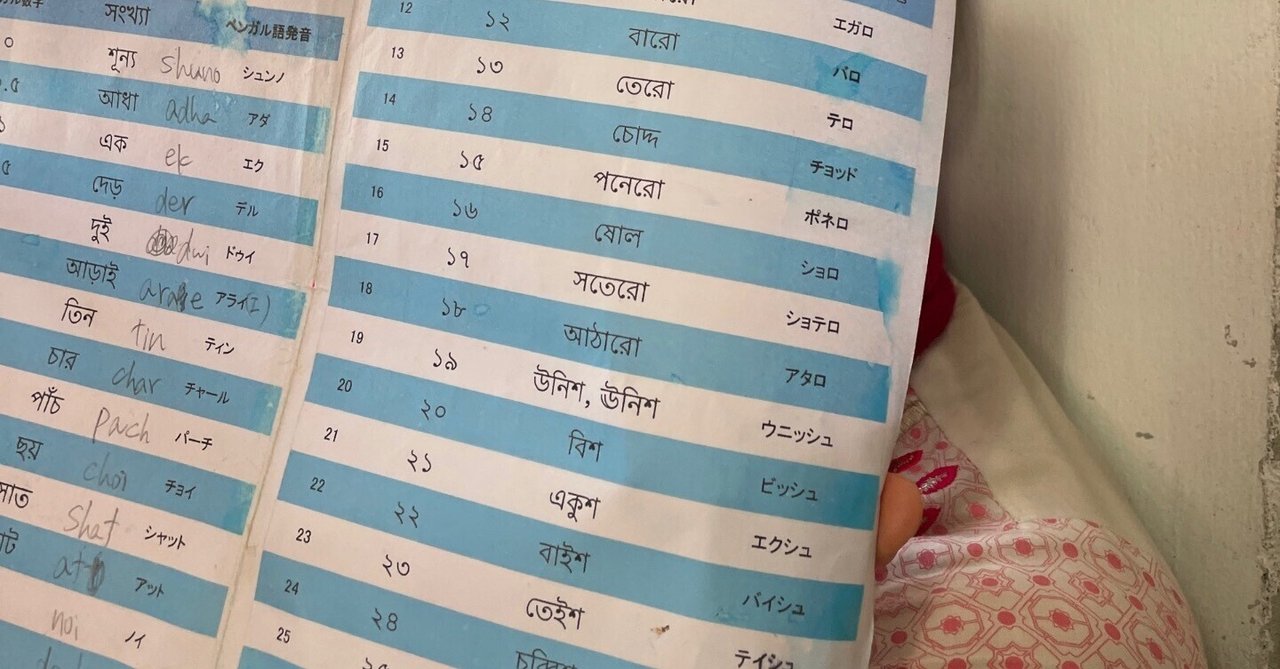 সংখ্যা ベンガル語発音
শূন্য shuno シュンノ
আধা adha アダ
এক ek エク
দেড় der デル
দুই dwi ドゥイ
আড়াই アライ(エ)
তিন tin ティン
চার char チャール
পাঁচ pach パーチ
ছয় choi チョイ
সাত shat シャット
at アット
noi ノイ
エガロ
12 ১২ বারো バロ
13 ১৩ তেরো テロ
14 ১৪ চোদ্দ チョッド
15 ১৫ পনেরো ポネロ
16 ১৬ ষোল ショロ
17 ১৭ সতেরো ショテロ
18 ১৮ আঠারো アタロ
19 ১৯ উনিশ, ঊনিশ ウニッシュ
20 ২০ বিশ ビッシュ
21 ২১ একুশ エクシュ
22 ২২ বাইশ バイシュ
23 ২৩ তেইশ テイシュ
24 ২৪
25